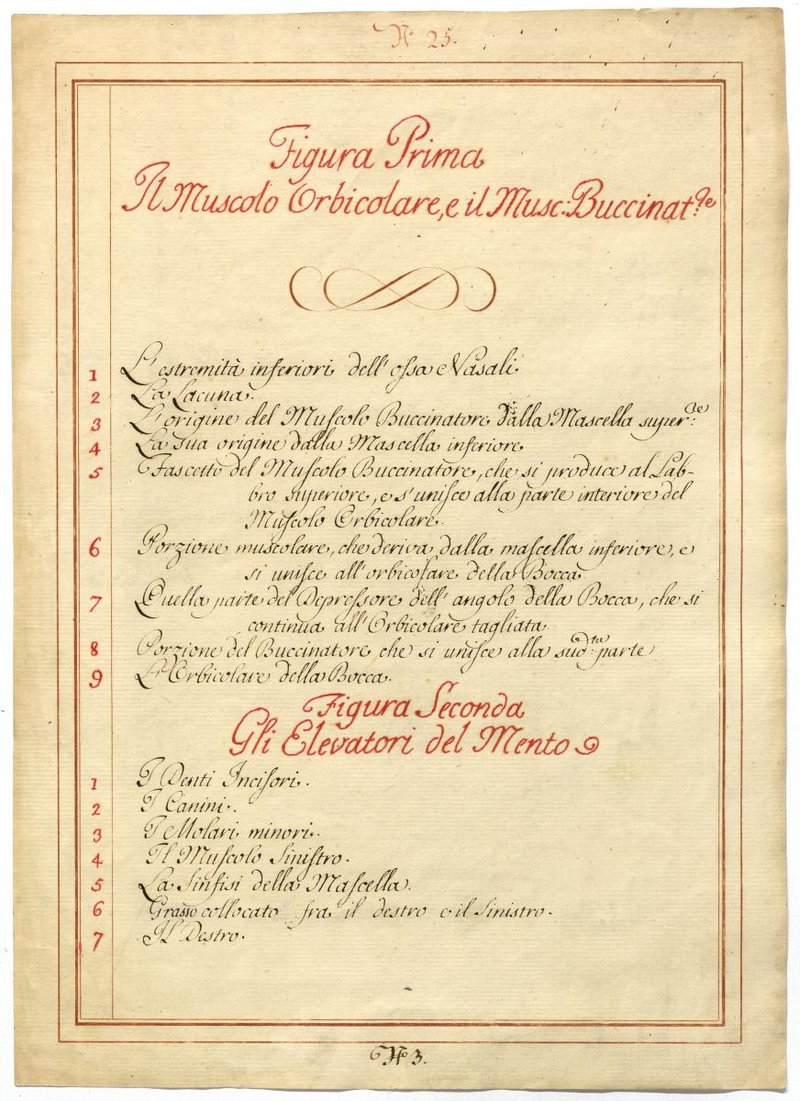 N.º 25.
Figura Prima
Il Muscolo Orbicolare, e il Musc: Buccinat.re
1 L'estremità inferiori dell'ossa Nasali.
2 La Lacuna.
3 L'origine del Muscolo Buccinatore dalla Mascella super.re
4 La sua origine dalla Mascella inferiore
5 Fascetto del Muscolo Buccinatore, che si produce al Lab-
bro superiore, e s'unisce alla parte interiore del
Muscolo Orbicolare.
6 Porzione muscolare, che deriva dalla mascella inferiore, e
si unisce all'orbicolare della Bocca
7 Quella parte del Depressore dell'angolo della Bocca, che si
continua all'Orbicolare tagliata
8 Porzione del Buccinatore che si unisce alla sud.ta parte
9 L'Orbicolare della Bocca.
Figura Seconda
Gli Elevatori del Mento
1 I Denti Incisori.
2 I Canini.
3 I Molari minori.
4 Il Muscolo Sinistro.
5 La Sinfisi della Mascella.
6 Grasso collocato fra il destro e il Sinistro.
7 Il Destro.
N.º 3.